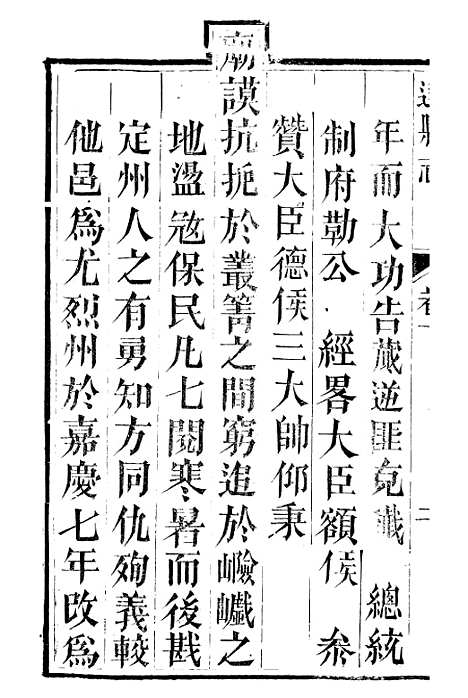 達縣志
卷
二
年而大功告蕆逆匪克殲 總統
制府勒公 經畧大臣額侯 叅
贊大臣德侯三大帥仰秉
廟謨抗扼於叢箐之間窮追於嶮巇之
地盪宼保民凡七閱寒暑而後戡
定州人之有勇知方同仇殉義較
他邑爲尤烈州於嘉慶七年改爲